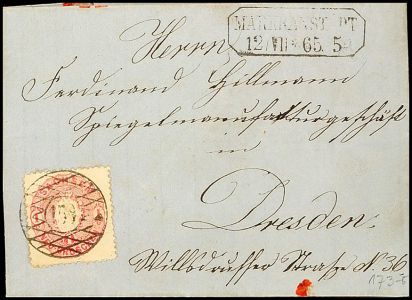 MARKRANSTÄDT
12/VII * 65. 5
Herrn
Ferdinand Hillmann
Spiegelmanufakturgeschäft
in
Dresden.
Willsdruffer Straße N. 36
173-